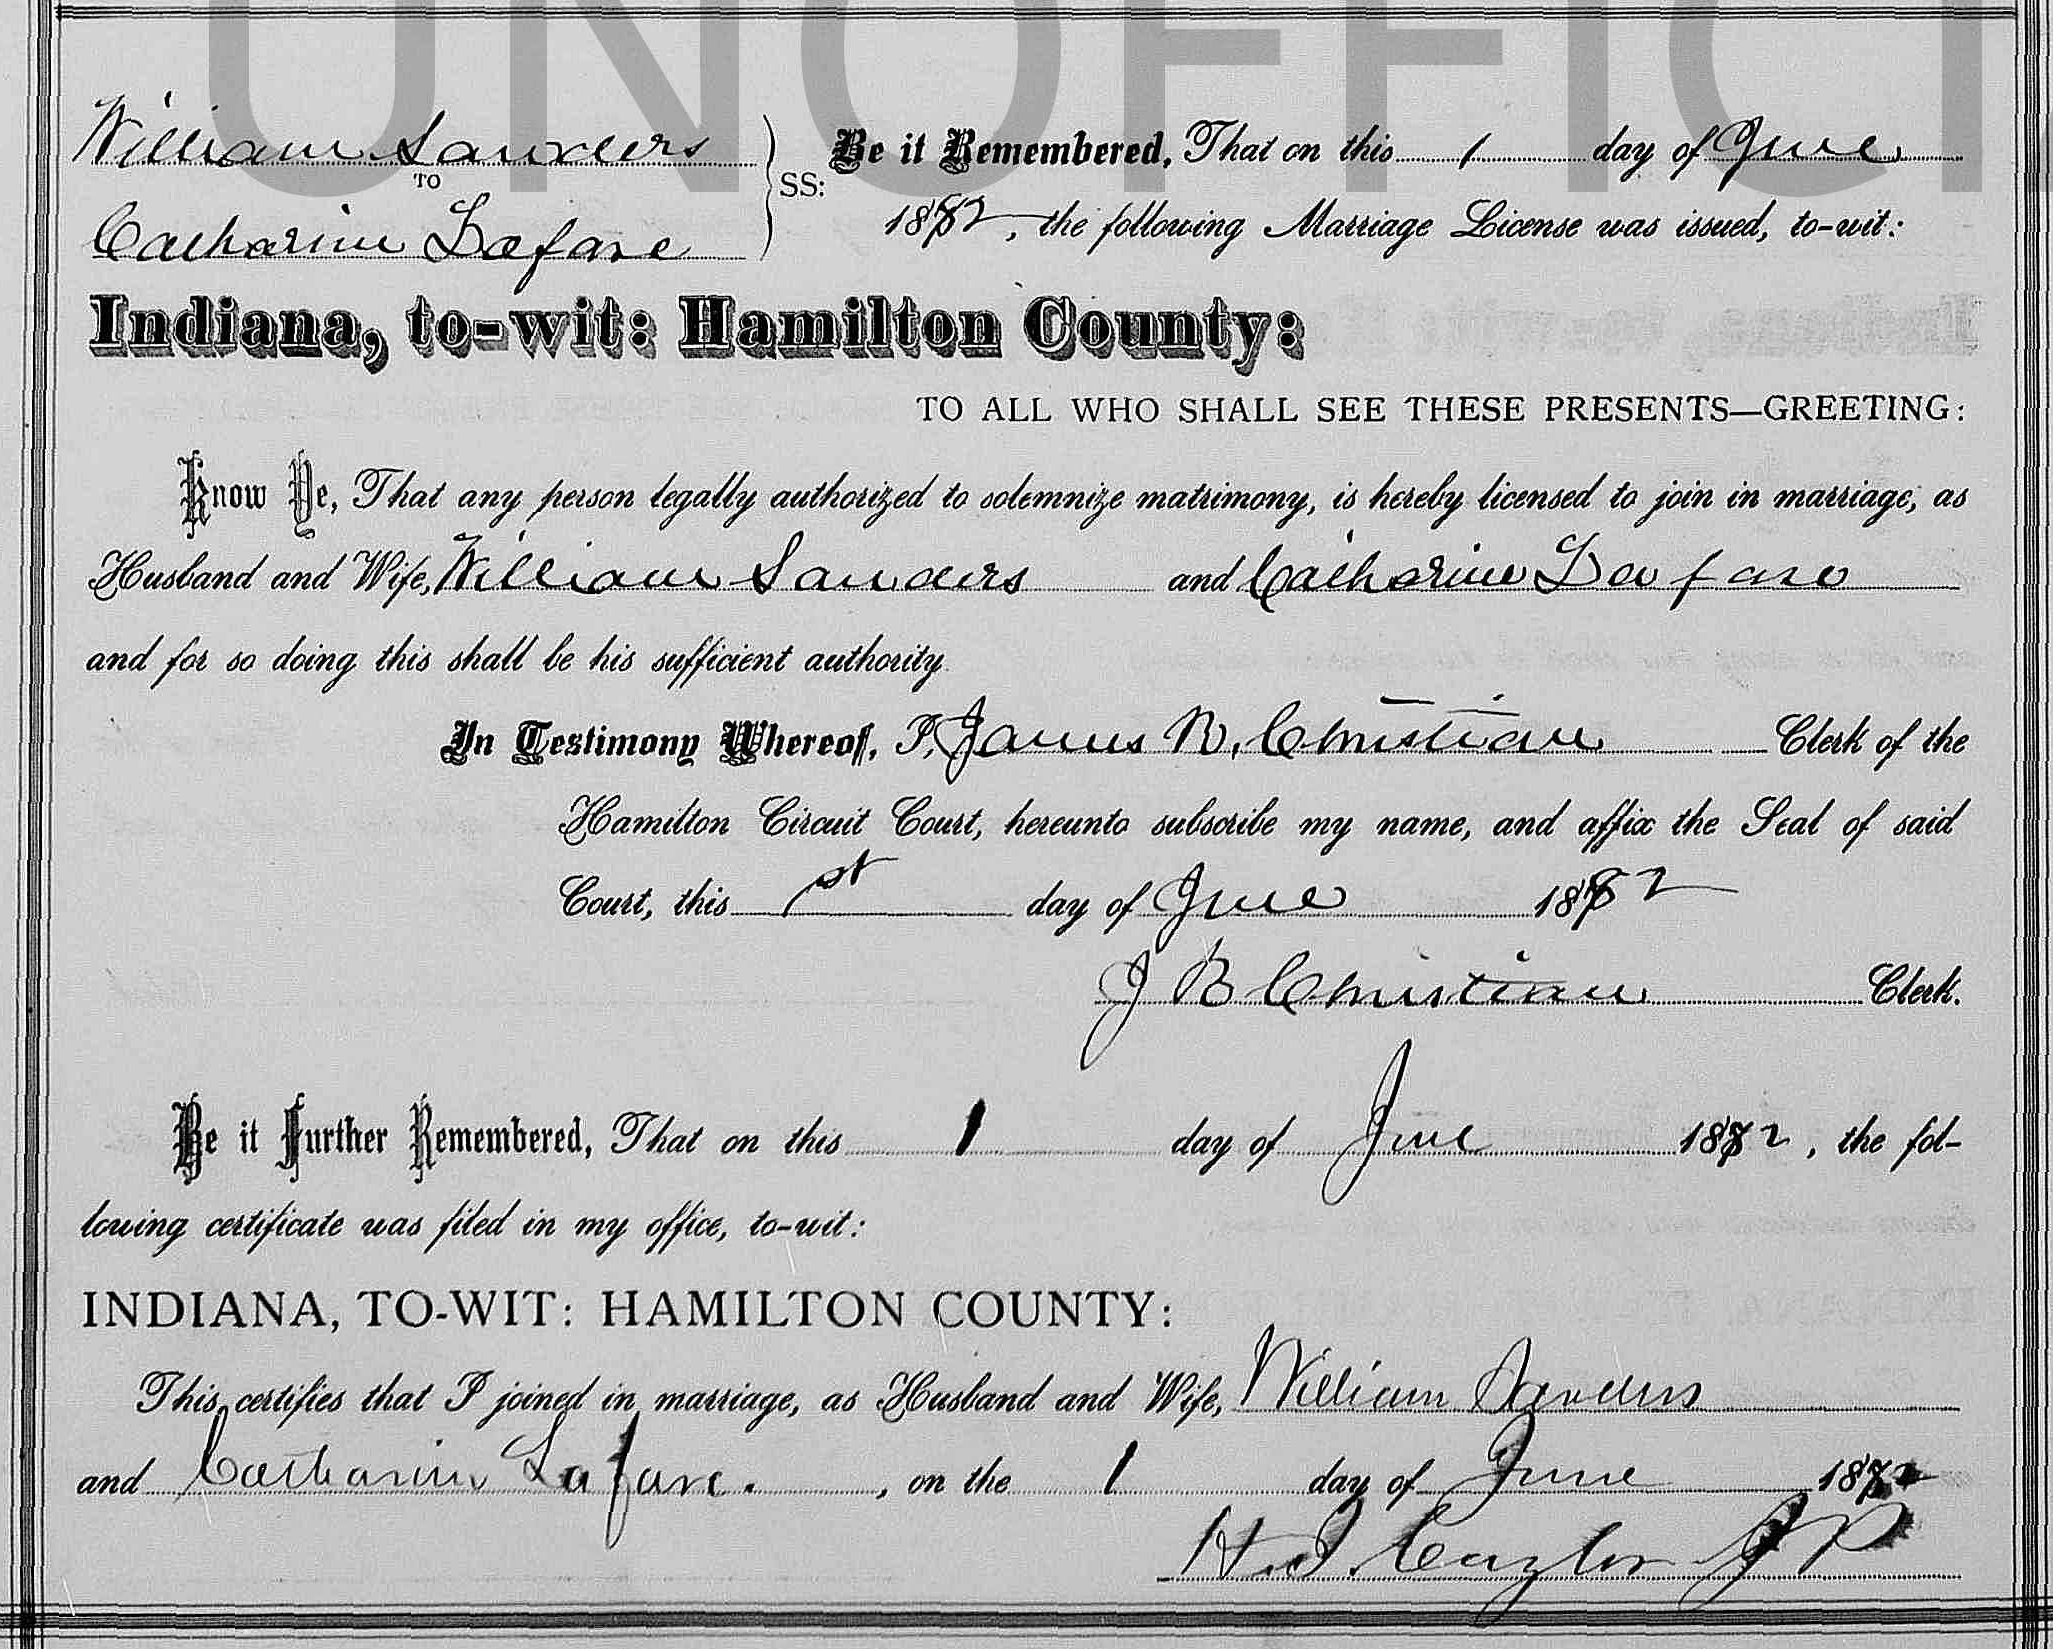 UNOFFICI
William Sanders
TO
Catharine Lafare
SS:
Be it Remembered, That on this 1 day of June
1882, the following Marriage License was issued, to-wit:
Indiana, to-wit: Hamilton County:
TO ALL WHO SHALL SEE THESE PRESENTS—GREETING:
Know Ye, That any person legally authorized to solemnize matrimony, is hereby licensed to join in marriage, as
Husband and Wife, William Sanders and Catharine Lafare
and for so doing this shall be his sufficient authority.
In Testimony Whereof, I, James R. Christian Clerk of the
Hamilton Circuit Court, hereunto subscribe my name, and affix the Seal of said
Court, this 1st day of June 1882
J R Christian Clerk.
Be it Further Remembered, That on this 1 day of June 1882, the fol-
lowing certificate was filed in my office, to-wit:
INDIANA, TO-WIT: HAMILTON COUNTY:
This certifies that I joined in marriage, as Husband and Wife, William Sanders
and Catharine Lafare. , on the 1 day of June 1882
Caylor J P